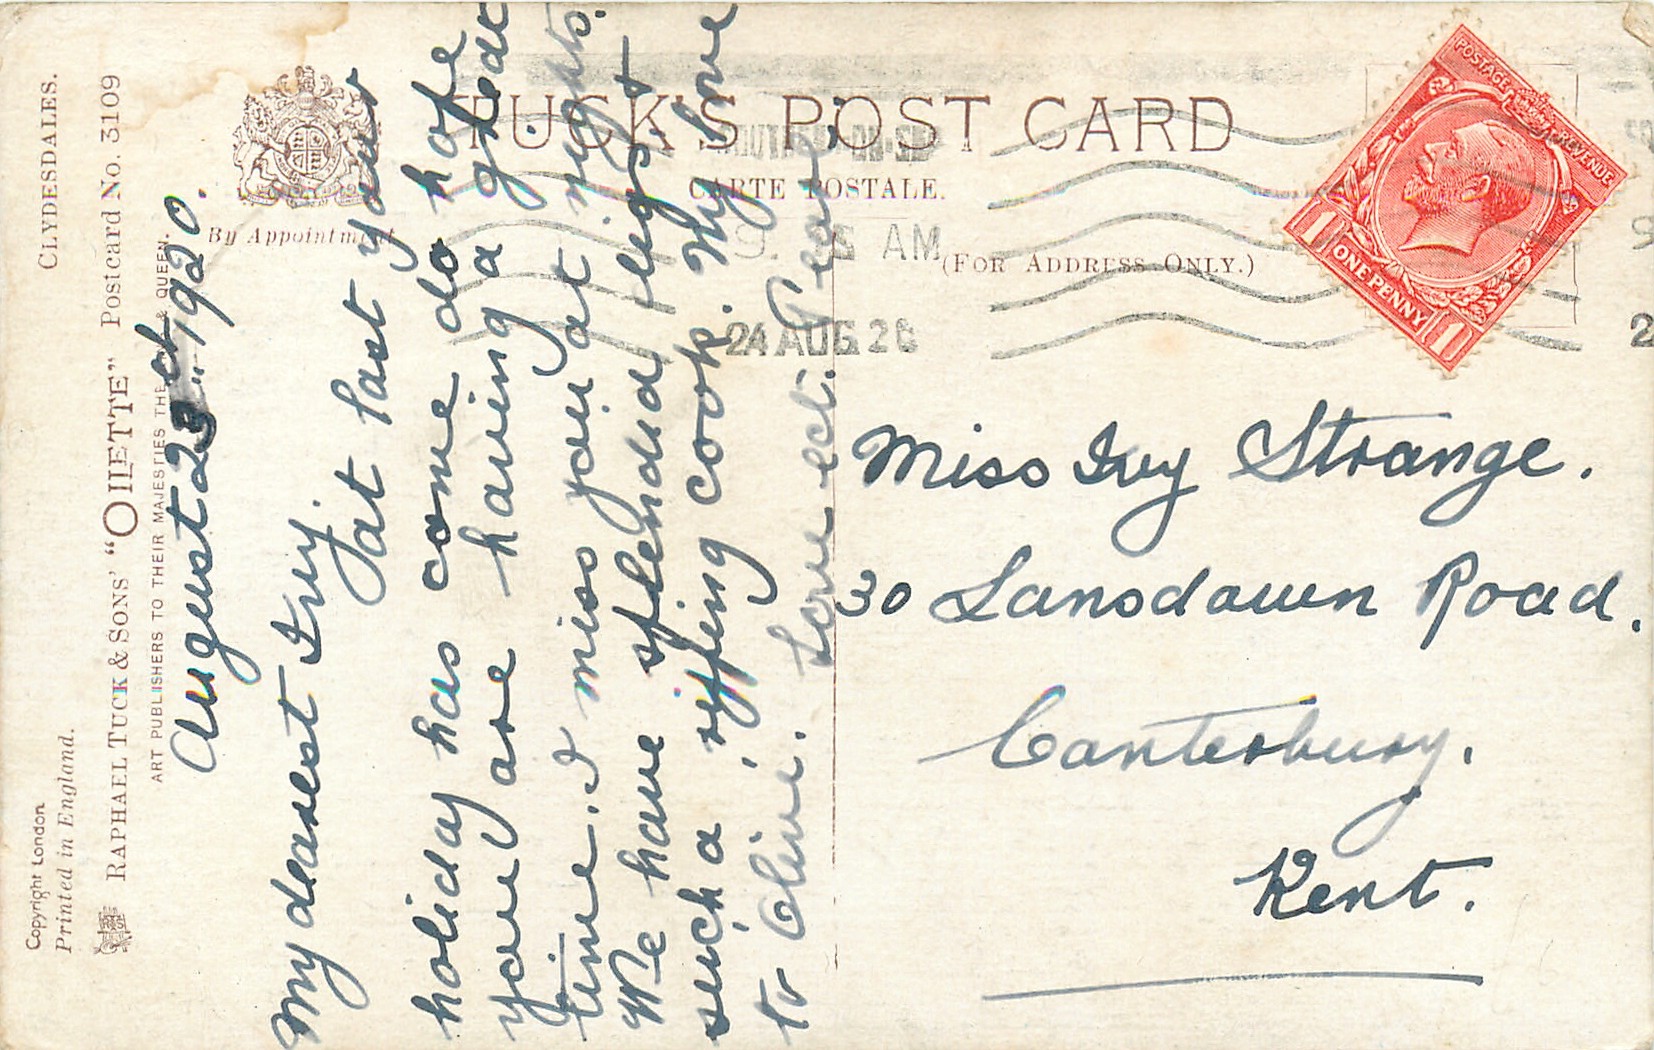 CLYDESDALES.
RAPHAEL TUCK & SONS' "OILETTE" Postcard No. 3109
ART PUBLISHERS TO THEIR MAJESTIES THE & QUEEN.
Copyright London
Printed in England.
By Appointment
TUCK'S POST CARD
CARTE POSTALE.
(FOR ADDRESS ONLY.)
AM
24 AUG 20
POSTAGE REVENUE
1 ONE PENNY 1
August 23 1920.
My dearest Ivy.
at last your
holiday has come do hope
you are having a great
time. I miss you at nights.
We have splendid digs &
such a ripping cook. My love
to Clive. Love ect. Pearl
Miss Ivy Strange.
30 Lansdown Road.
Canterbury.
Kent.